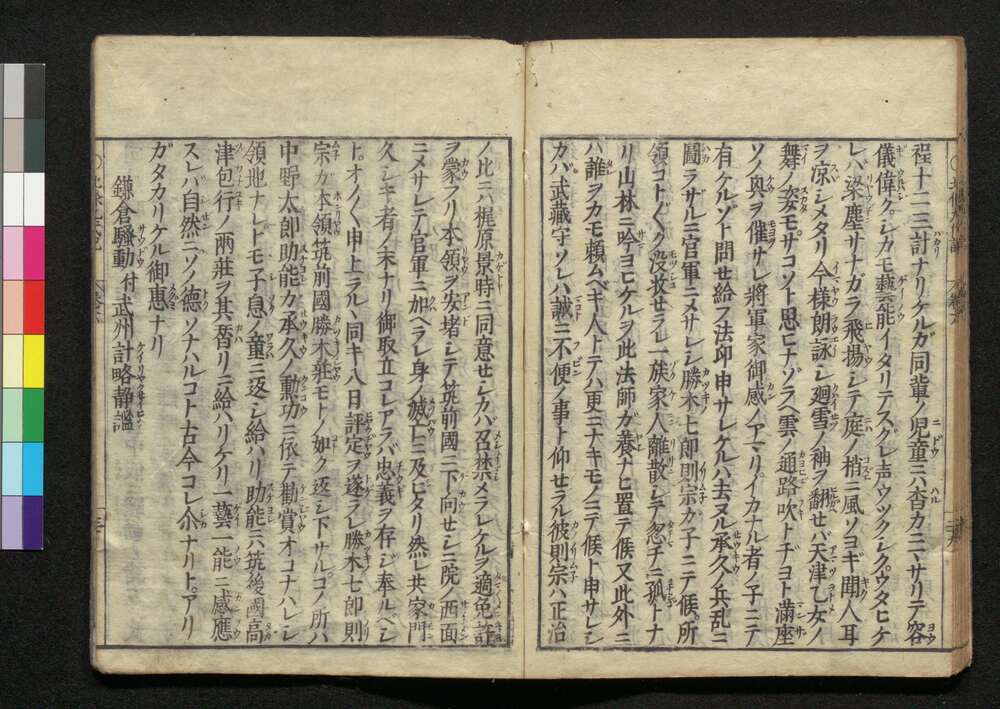 程十二三計ナリケルガ同輩ノ児童ニハ杳カニマサリテ容
儀偉クシカモ藝能イタリテスグレ声ウツクシクウタヒケ
レバ梁塵サナガラ飛揚シテ庭ノ梢ニ風ソヨギ聞人耳
ヲ凉シメタリ今様朗詠シ廻雪ノ袖ヲ翻セバ天津乙女ノ
舞ノ姿モサコソト思ヒナゾラヘ雲ノ通路吹トヂヨト滿座
ソノ興ヲ催サレ將軍家御感ノアマリイカナル者ノ子ニテ
有ケルゾト問せ給フ法印申サレケルハ去ヌル承久ノ兵乱ニ
圖ラザルニ官軍ニメサレシ勝木七郎則宗カ子ニテ候所
領コト〴〵ク没收せラレ一族家人離散シテ忽チニ孤トナ
リ山林ニ吟ヨヒケルヲ此法師カ養ナヒ置テ候又此外ニ
ハ誰ヲカモ頼ムベキ人トテハ更ニナキモノニテ候ト申サレシ
カバ武藏守ソレハ誠ニ不便ノ事ト仰せラル彼則宗ハ正治
ノ比ニハ梶原景時ニ同意せシカバ召禁メラレケルヲ適免許
ヲ蒙フリ本領ヲ安堵シテ筑前國ニ下向せシニ院ノ西面
ニメサレテ官軍ニ加ヘラレ身ノ滅亡ニ及ヒタリ然レ共家門
久シキ者ノ末ナリ御取立コレアラバ忠義ヲ存ジ奉ルベシ
トオノ〳〵申上ラル同キ八日評定ヲ遂ラレ勝木七郎則
宗カ本領筑前國勝木莊モトノ如ク返シ下サルコノ所ハ
中野太郎助能カ承久ノ勲功ニ依テ勸賞オコナハレシ
領地ナレトモ子息ノ童ニ返シ給ハリ助能ニハ筑後國高
津包行ノ両莊ヲ其替リニ給ハリケリ一藝一能ニ感應
スレバ自然ニソノ德ソナハルコト古今コレ尒ナリトアリ
ガタカリケル御惠ナリ
鎌倉騒動付武州計略静謐